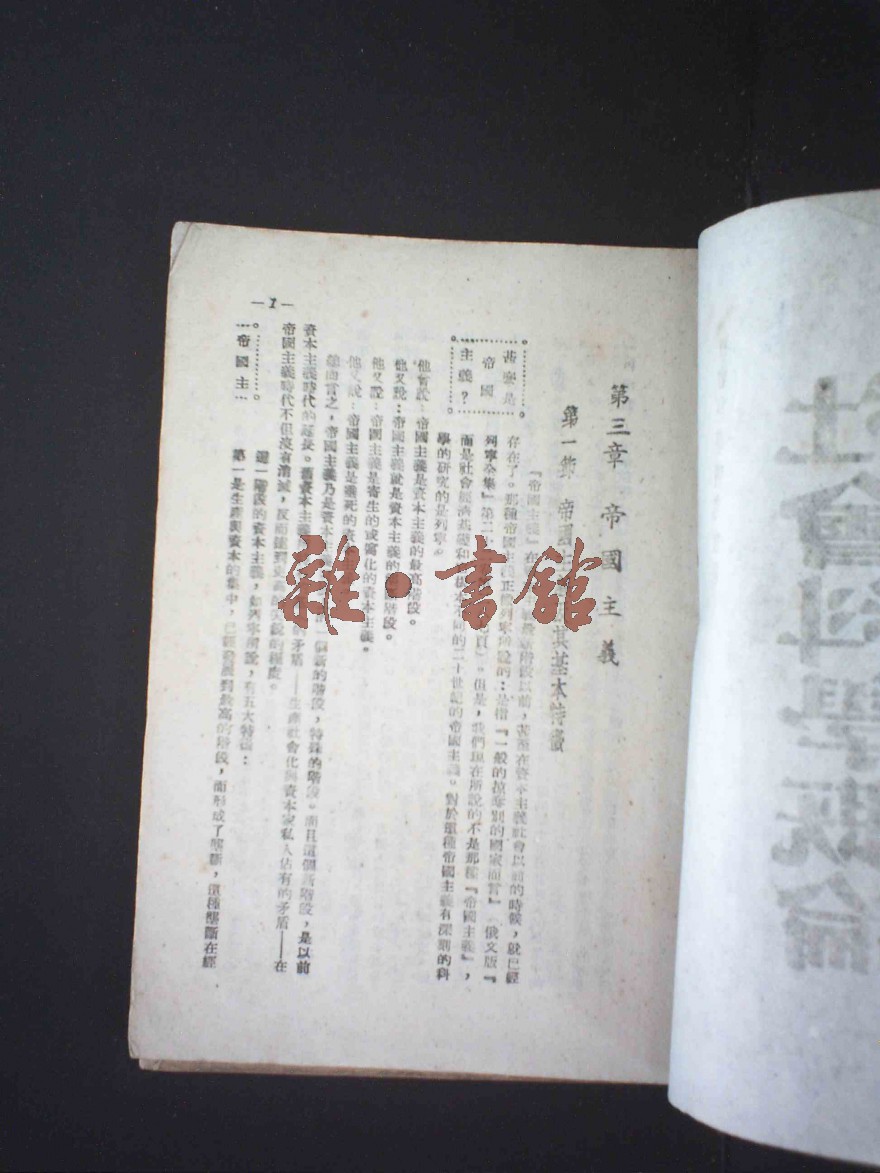 社會科學概論
第三章 帝國主義
第一節 帝國主 其基本特徵
甚麼是
帝國
主義?
『帝國主義』在 階段以前,甚至在資本主義社會以前的時候,就已經
存在了。那種帝國主 正 列寧所說的:是指『一般的掠奪別的國家而言』(俄文版『
列寧全集』第二 頁)。但是,我們現在所說的不是那種『帝國主義』,
而是社會經濟基礎和 的二十世紀的帝國主義。對於這種帝國主義有深刻的科
學的研究的是列寧。
他曾說:帝國主義是資本主義的最高階段。
他又說:帝國主義就是資本主義的 階段。
他又說:帝國主義是寄生的或腐化的資本主義。
他又說:帝國主義是垂死的資
總而言之,帝國主義乃是資本主 一個新的階段,特殊的階段。而且這個新階段,是以前
資本主義時代的延長。舊資本主義 的矛盾——生產社會化與資本家私人佔有的矛盾——在
帝國主義時代不但沒有消滅,反而 的程度。
帝國主
這一階段的資本主義,如列寧所說,有五大特徵:
第一是生產與資本的集中,已經發展到最高的階段,而形成了壟斷,這種壟斷在經
—1—
雜·書館